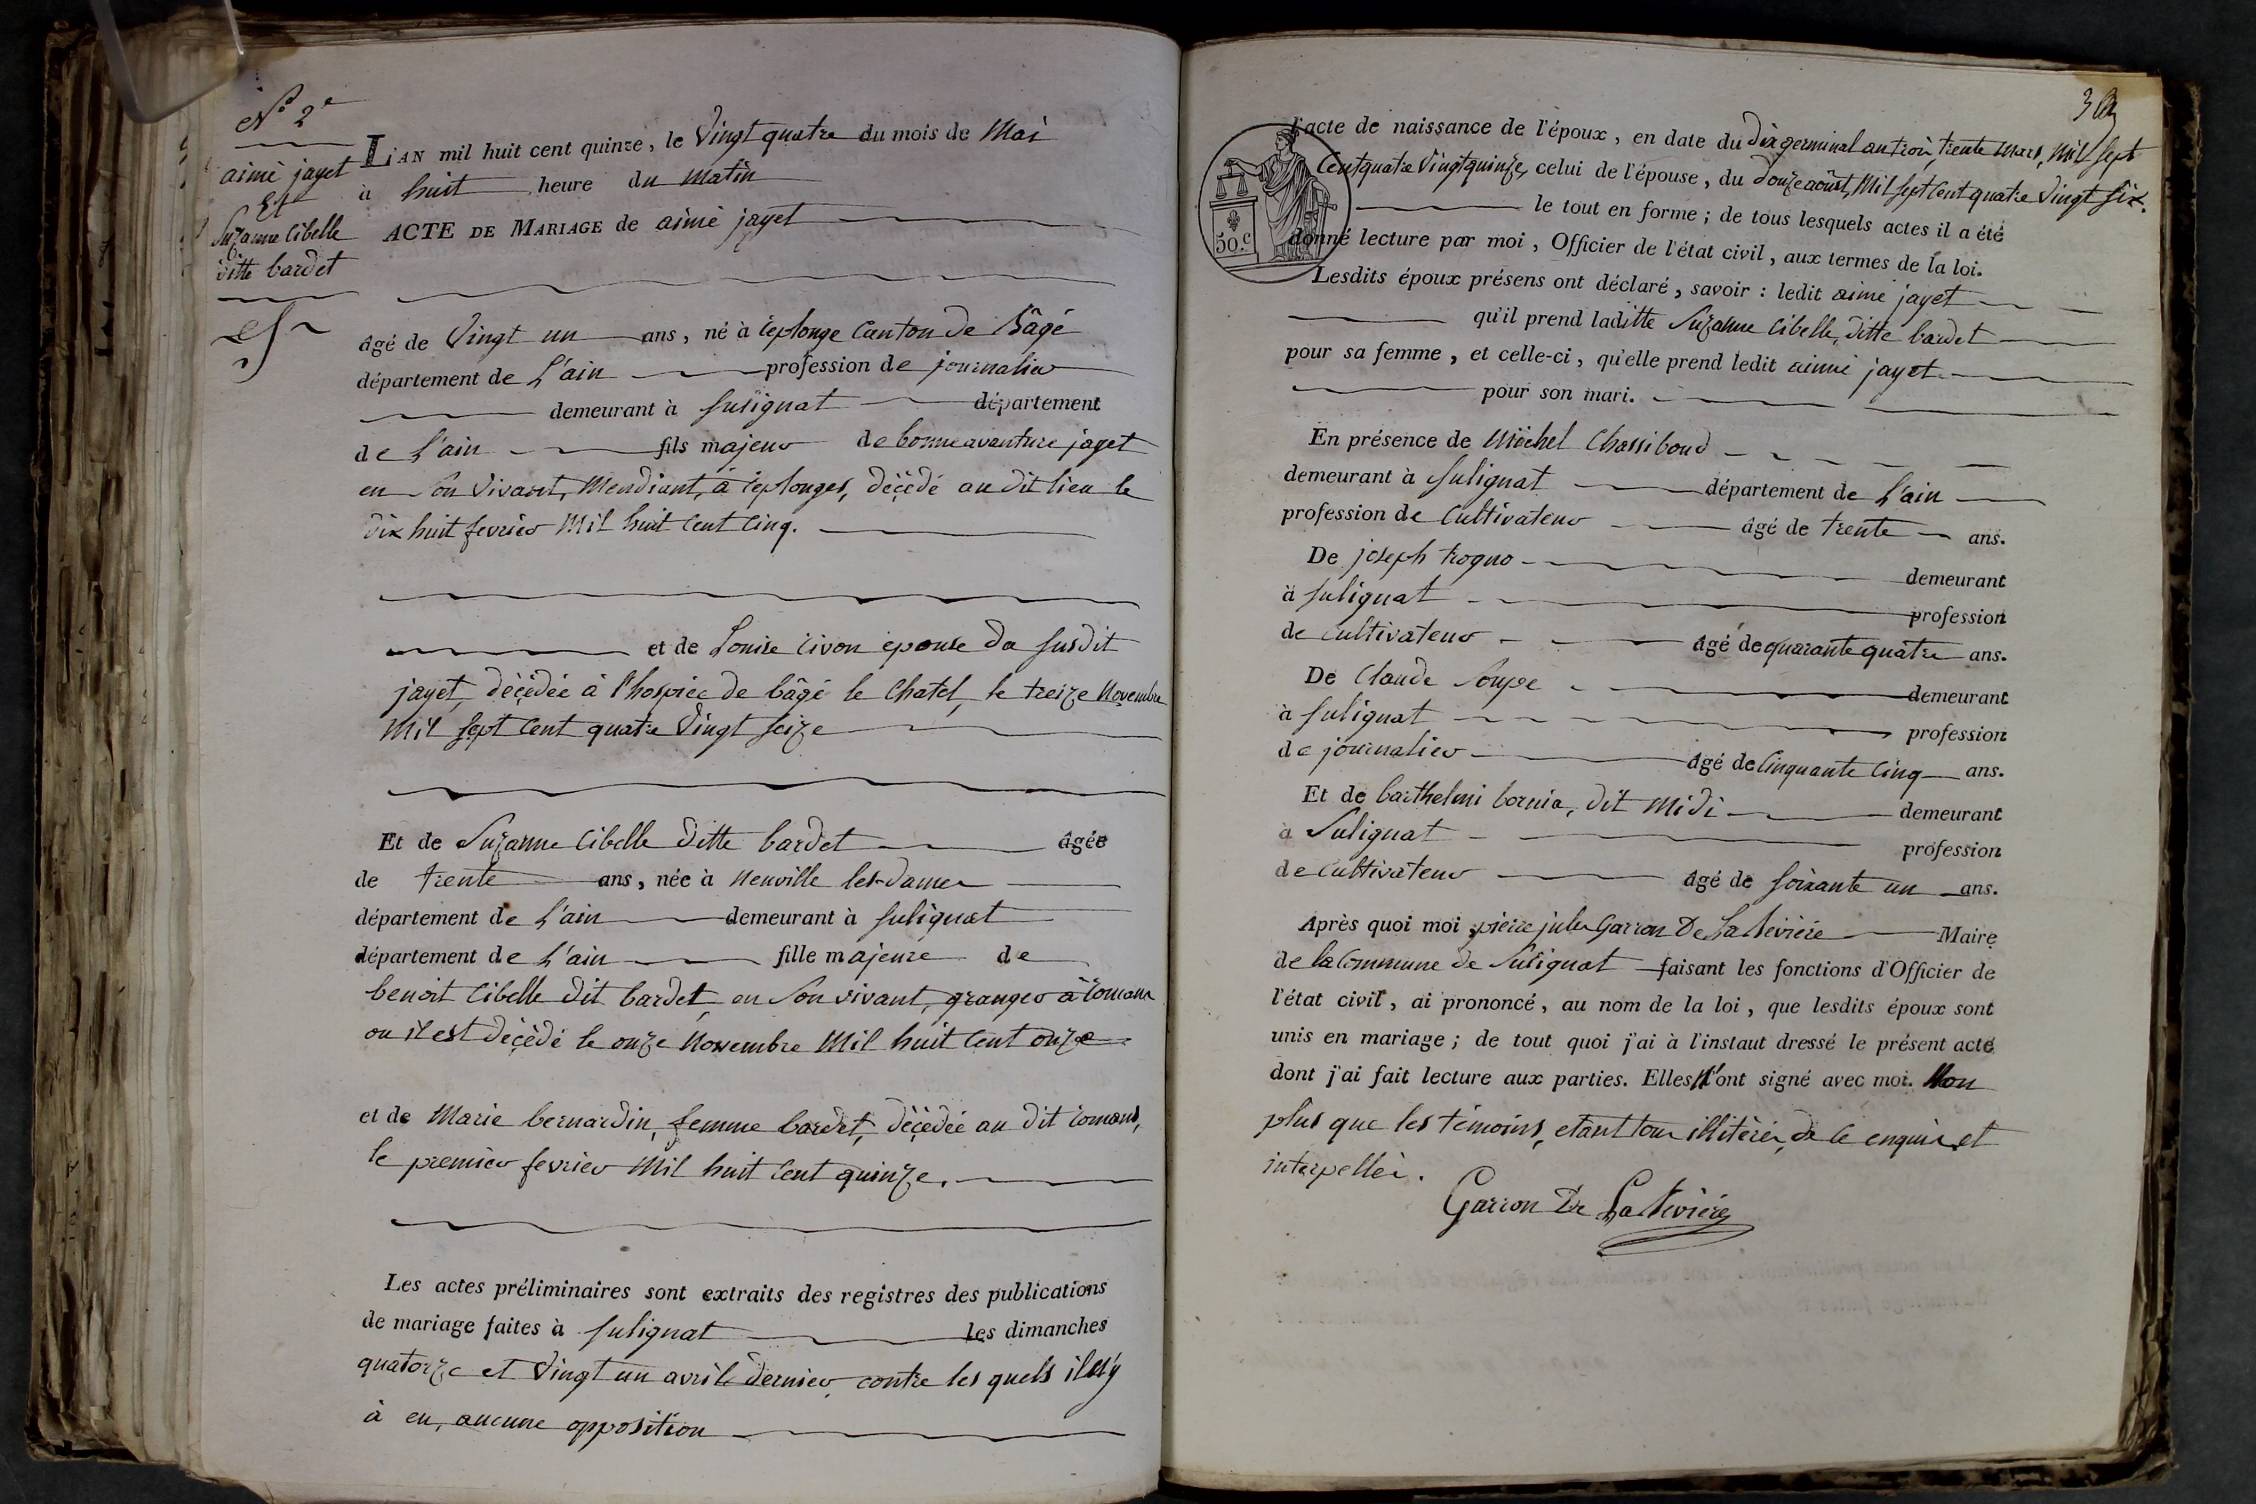 N° 2e
aimé jayet
Et
Suzanne Cibelle
ditte bardet
L'AN mil huit cent quinze, le Vingt quatre du mois de Mai
à huit heure du matin
ACTE DE MARIAGE de aimé jayet
âgé de Vingt un ans, né à ceplonge Canton de Bâgé
département de L'ain profession de journalier
demeurant à Sulignat département
de L'ain fils majeur de bonneavanture jayet
en son vivant, Mendiant, à ceplonges, décédé au dit lieu le
dix huit fevrier Mil huit Cent Cinq.
et de Louise Civon epouse du susdit
jayet, décédée à l'hospice de bâgé le Chatel, le treize Novembre
Mil sept Cent quatre Vingt seize
Et de Suzanne Cibelle ditte bardet âgée
de trente ans, née à Neuville les-dames
département de L'ain demeurant à Sulignat
département de L'ain fille majeure de
benoit Cibelle dit bardet, en son vivant, granger à romans
ou il est décédé le onze Novembre Mil huit Cent onze
et de Marie bernardin, femme bardet, décédée au dit romans,
le premier fevrier Mil huit Cent quinze.
Les actes préliminaires sont extraits des registres des publications
de mariage faites à Sulignat les dimanches
quatorze et Vingt un avril dernier, contre les quels il n'y
à eu, aucune opposition
50.c
l'acte de naissance de l'époux, en date du dix germinal an trois, trente Mars, Mil sept
Cent quatre Vingt quinze, celui de l'épouse, du douze août, Mil sept Cent quatre Vingt six.
le tout en forme; de tous lesquels actes il a été
donné lecture par moi, Officier de l'état civil, aux termes de la loi.
Lesdits époux présens ont déclaré, savoir: ledit aimé jayet
qu'il prend laditte Suzanne Cibelle, ditte bardet
pour sa femme, et celle-ci, qu'elle prend ledit aimé jayet
pour son mari.
En présence de Michel Chassiboud
demeurant à Sulignat département de L'ain
profession de Cultivateur âgé de trente ans.
De joseph trogno demeurant
à Sulignat profession
de Cultivateur âgé de quarante quatre ans.
De Claude Soupe demeurant
à Sulignat profession
de journalier âgé de Cinquante Cinq ans.
Et de barthelmi bornia, dit Midi demeurant
à Sulignat profession
de Cultivateur âgé de soixante un ans.
Après quoi moi pierre jules Garron De La Bévière Maire
de la Commune de Sulignat faisant les fonctions d'Officier de
l'état civil, ai prononcé, au nom de la loi, que lesdits époux sont
unis en mariage; de tout quoi j'ai à l'instaut dressé le présent acte
dont j'ai fait lecture aux parties. Elles N'ont signé avec moi. Non
plus que les témoins, etant tous illitérés, de ce enquis et
interpellés.
Garron De La Bévière